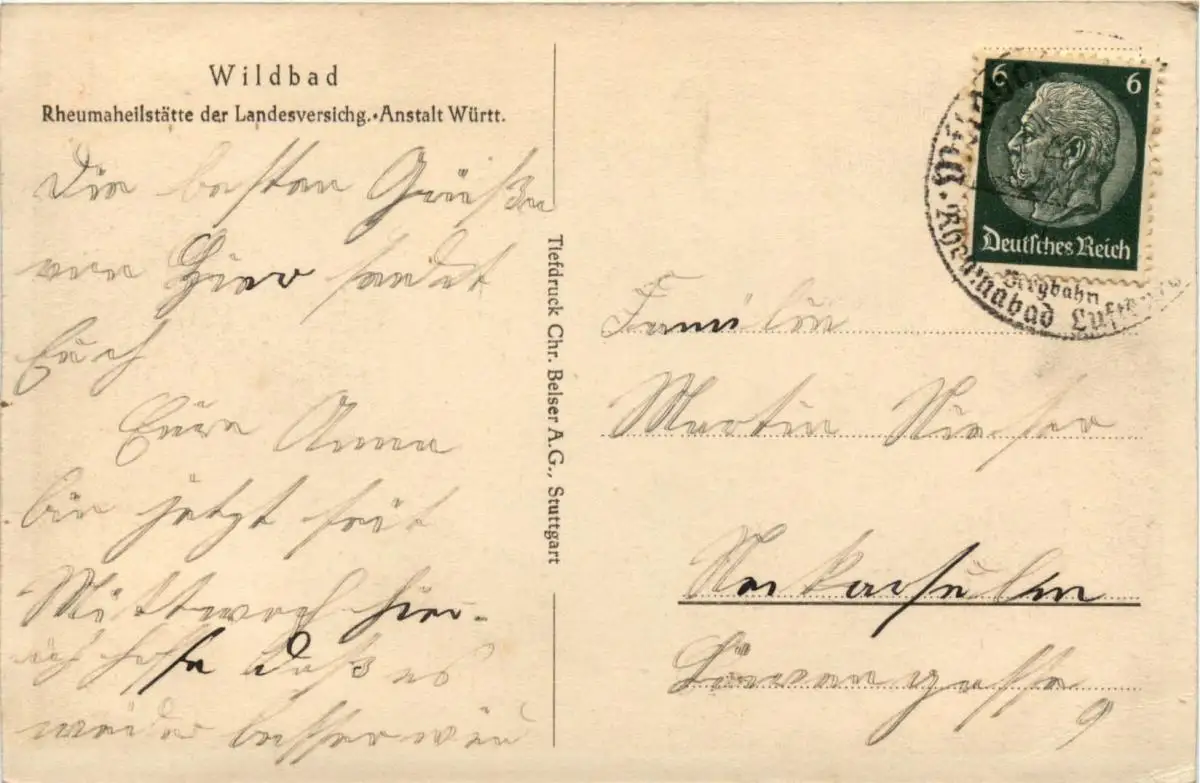 Wildbad
Rheumaheilstätte der Landesversichg.-Anstalt Württ.
Die besten Grüße
von Hier sendet
Euch
Eure Anna
bin jetzt seit
Mittwoch hier.
ich hoffe daß es
wieder besser wird
Tiefdruck Chr. Belser A.G., Stuttgart
6 6
Deutsches Reich
Wildbad
Bergbahn
Rheumabad
Familie
Martin
Neckarsulm
Löwengasse
9